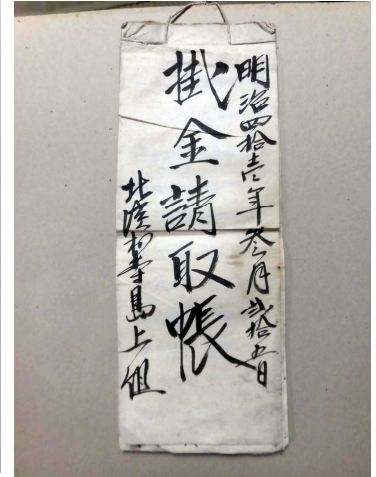 明治四拾壱年参月弐拾五日
掛金請取帳
北濱村寺島上組